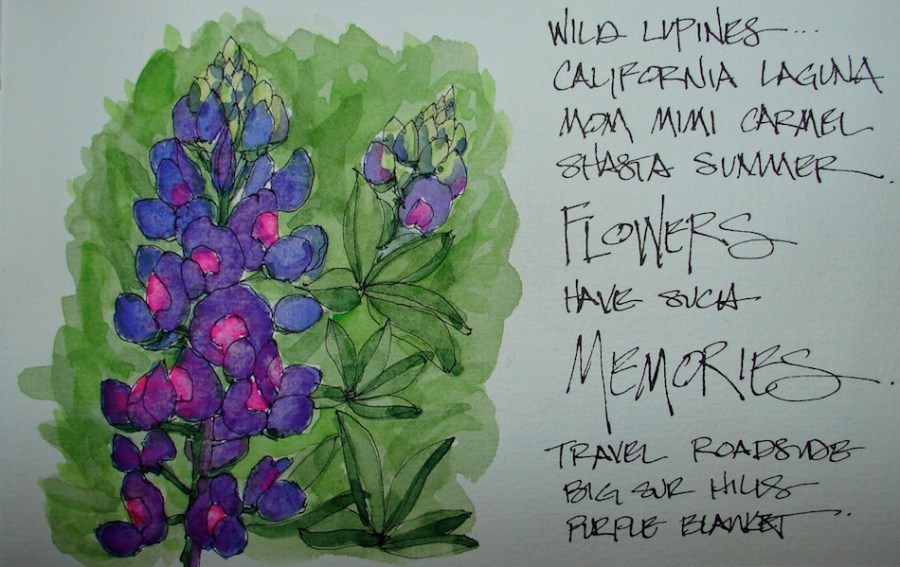 WILD LUPINES...
CALIFORNIA LAGUNA
MOM MIMI CARMEL
SHASTA SUMMER.
FLOWERS
HAVE SUCH
MEMORIES.
TRAVEL ROADSIDE
BIG SUR HILLS
PURPLE BLANKET..